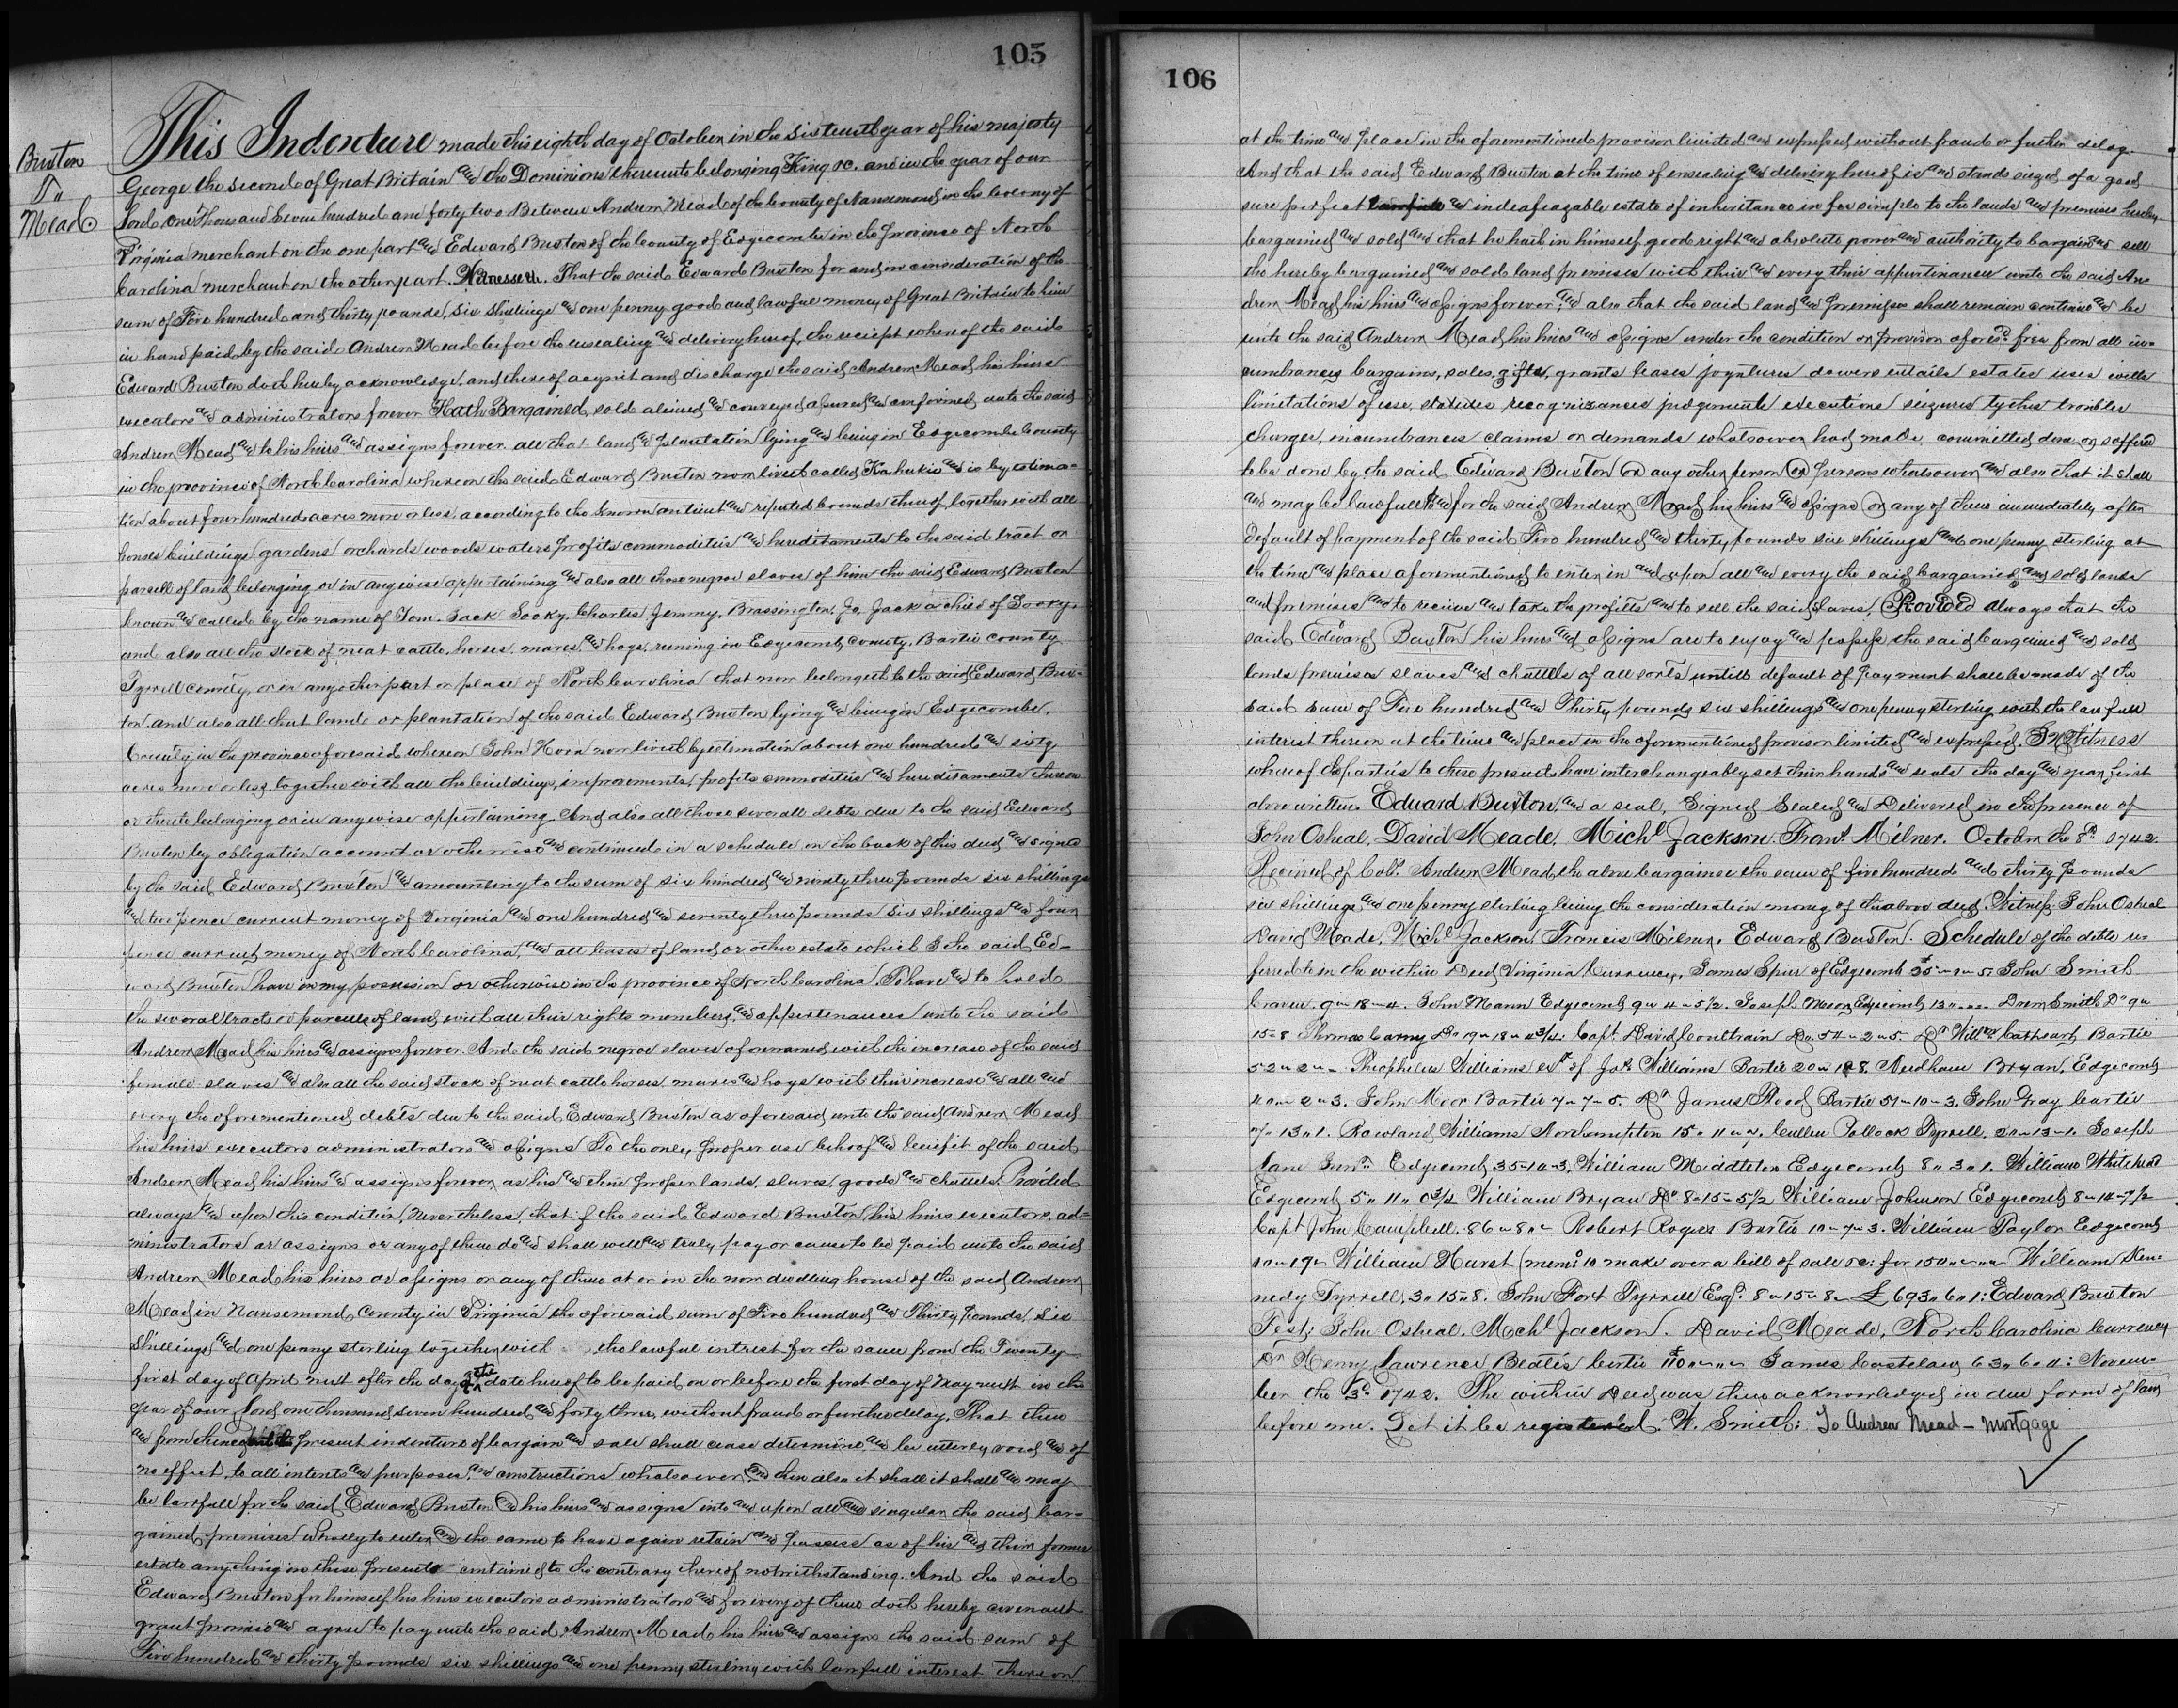 105
Buxton
To
Mead
This Indenture made this eighth day of October in the sixteenth year of his majesty
George the second of Great Britain and the Dominions thereunto belonging King &c. and in the year of our
Lord one Thousand Seven hundred and forty two Between Andrew Mead of the County of Nansemond in the Colony of
Virginia merchant on the one part and Edward Buxton of the County of Edgecombe in the province of North
Carolina merchant on the other part. Witnesseth. That the said Edward Buxton for and in consideration of the
sum of Five hundred and thirty pounds, six shillings and one penny good and lawful money of Great Britain to him
in hand paid by the said Andrew Mead before the ensealing and delivery hereof, the reciept whereof the said
Edward Buxton doth hereby acknowledge, and thereof acquit and discharge the said Andrew Mead his heirs
executors and administrators forever Hath Bargained, sold aliened and conveyed assured and confirmed unto the said
Andrew Mead and to his heirs and assigns forever. all that land and plantation lying and being in Edgecombe County
in the province of North Carolina whereon the said Edward Buxton now liveth called Kahukia and is by estima=
tion about four hundred acres more or less, according to the known antient and reputed bounds thereof, together with all
houses buildings gardens orchards woods waters profits commodities and hereditaments to the said tract or
parcell of land belonging or in anywise appertaining and also all those negroe slaves of him the said Edward Buxton
known and called by the name of Tom. Jack Sooky, Charles, Jemmy, Brassington, Jo, Jack a child of Sooky.
and also all the stock of neat cattle, horses, mares, and hogs, runing in Edgecomb, county, Bartie county
Tyrrell county, or in any other part or place of North Carolina that now belongeth to the said Edward Bux=
ton. and also all that land or plantation of the said Edward Buxton lying and being in Edgecombe.
County, in the province aforesaid whereon John Horn now liveth by estimation about one hundred and sixty
acres more or less, together with all the buildings, improvements, profits commodities and hereditaments thereon
or thereto belonging or in anywise appertaining And also all those severall debts due to the said Edward
Buxton by obligation account or otherwise and continued in a schedule on the back of this deed and signed
by the said Edward Buxton and amounting to the sum of six hundred and ninety three pounds six shillings
and two pence current money of Virginia and one hundred and seventy three pounds six shillings and four
pence current money of North Carolina, and all leases of land or other estate which I the said Ed-
ward Buxton have in my possession or otherwise in the province of North Carolina. To have and to hold
the several tracts or parcells of land with all their rights members, and appertenances unto the said
Andrew Mead his heirs and assigns forever. And the said negroe slaves aforenamed with the increase of the said
female slaves and also all the said stock of neat cattle horses, mares and hogs with their increase and all and
every the aforementioned debts due to the said Edward Buxton as aforesaid unto the said Andrew Mead
his heirs executors administrators and assigns To the only, proper use behoof and benifit of the said
Andrew Mead his heirs and assigns forever, as his and their proper lands, slaves, goods and chattels. Provided
always and upon this condition, nevertheless, that if the said Edward Buxton, his heirs executors, ad=
ministrators or assigns or any of them do and shall well and truly pay or cause to be paid unto the said
Andrew Mead his heirs or assigns or any of them at or in the now dwelling house of the said Andrew
Mead in Nansemond County in Virginia the aforesaid sum of Five hundred and Thirty pounds, six
Shillings and one penny sterling together with the lawful intrest for the same from the Twenty
first day of April next after the day of the date hereof to be paid on or before the first day of May next in the
year of our Lord one thousand seven hundred and forty three, without fraud or further delay, That then
and from thence present indenture of bargain and sale shall cease determine and be utterly void and of
no effect, to all intents and purposes, and constructions whatsoever, and then also it shall it shall and may
be lawfull for the said Edward Buxton and his heirs and assigns into and upon all and singular the said bar=
gained premises wholly to enter, and the same to have again retain and possess as of his and their former
estate anything in these presents contained to the contrary thereof notwithstanding. And the said
Edward Buxton for himself his heirs executors administrators and for every of them doth hereby covenant
grant promise and agree to pay unto the said Andrew Mead his heirs and assigns the said sum of
Five hundred and thirty pounds six shillings and one penny sterling with lawfull interest thereon
106
at the time and place in the aforementioned provison limited and expressed without fraud or futher delay.
And that the said Edward Buxton at the time of ensealing and delivery hereof is and stands siezed of a good
sure perfect and indeafeazable estate of inheritance in fee simple to the lands and premises hereby
bargained and sold and that he hath in himself good right and absolute power and authority to bargain and sell
the hereby bargained and sold land premises with their and every their appurtinances unto the said An
drew Mead his heirs and assigns forever; and also that the said land and premises shall remain continue and be
unto the said Andrew Mead his heirs and assigns under the condition or provison aforesd. free from all in=
cumbrances bargains, sales, gifts, grants leases joyntures dowers entails estates uses wills
limitations of use, statutes recognizances judgements executions seizures tythes troubles
charges, incumbrances claims or demands whatsoever had made, committed done or suffered
to be done by the said Edward Buxton or any other person or persons whatsoever and also that it shall
and may be lawfull for the said Andrew Mead his heirs and assigns or any of them immediately after
default of payment of the said Five hundred and thirty pounds six shillings and one penny sterling at
the time and place aforementioned to enter in and upon all and every the said bargained and sold lands
and premises and to receive and take the profitts and to sell the said slaves. Provided always that the
said Edward Buxton his heirs and assigns are to enjoy and possess the said bargained and sold
lands premises slaves and chattells of all sorts untill default of payment shall be made of the
said sum of Five hundred and Thirty pounds six shillings and one penny sterling with the lawfull
interest thereon at the time and place in the aforementioned provison limited and expressed. In Witness
whereof the parties to these presents have interchangeably set their hands and seals the day and year first
above written. Edward Buxton, and a seal, Signed Sealed and Delivered in the presence of
John Osheal, David Meade, Michl Jackson. Frans. Milner. October the 8th 1742.
Received of Colo. Andrew Mead the above bargainee the sum of five hundred and thirty pounds
six shillings and one penny sterling being the consideration money of the above deed. Witness: John Osheal
David Meade, Michl Jackson, Francis Milner. Edward Buxton. Schedule of the debts re
ferred to in the within Deed Virginia Currency, James Spier of Edgecomb John Smith
Craven. 9 " 18 " 4. John Mann Edgecomb 9 " 4 " 5 1/2. Joseph Edgecomb 13 " Drew Smith Do 9 "
15 " 8 Thomas Carny Do 19 " 18 " Capt. David Coultrain Do 54 " 2 " 5. Dr Willm Cathcart Bartie
52 " 2 " Theophelus Williams exr of Jos Williams Bartie Needham Bryan, Edgecomb
40 " 2 " 3. John Moor Bartie 7 " 7 " 5. Dr James Flood Bartie 51 " 10 " 3. John Gray Bartie
7 " 13 " 1. Rowland Williams Northampton 15 " 11 " Cullen Pollock Tyrrell. 20 " 13 " 1. Joseph
Lane Junr. Edgecomb William Middleton Edgecomb 8 " 3 " 1. William Whitehead
Edgecomb 5 " 11 " 0 3/4 William Bryan Do 8 " 15 " 5 1/2 William Johnson Edgecomb
Capt John Campbell. 86 " 8 " Robert Rogers Bartie 10 " 7 " 3. William Taylor Edgecomb
10 " 19 " William Hurst (memo to make over a bill of sale &c: for 150 " William Ken=
nedy Tyrrell, 3 " 15 " 8. John Fort Tyrrell Esqr. 8 " 15 " 8 £ 693 " 6 " 1: Edward Buxton
Test: John Osheal. Michl Jackson. David Meade, North Carolina Currency
Dr Henry Lawrence Bartie 110 " James Castelaw 63 " 6 " 4: Novem=
ber the 3d. 1742. The within Deed was then acknowledged in due form of law
before me. Let it be registered. W. Smith: To Andrew Mead — Mortgage